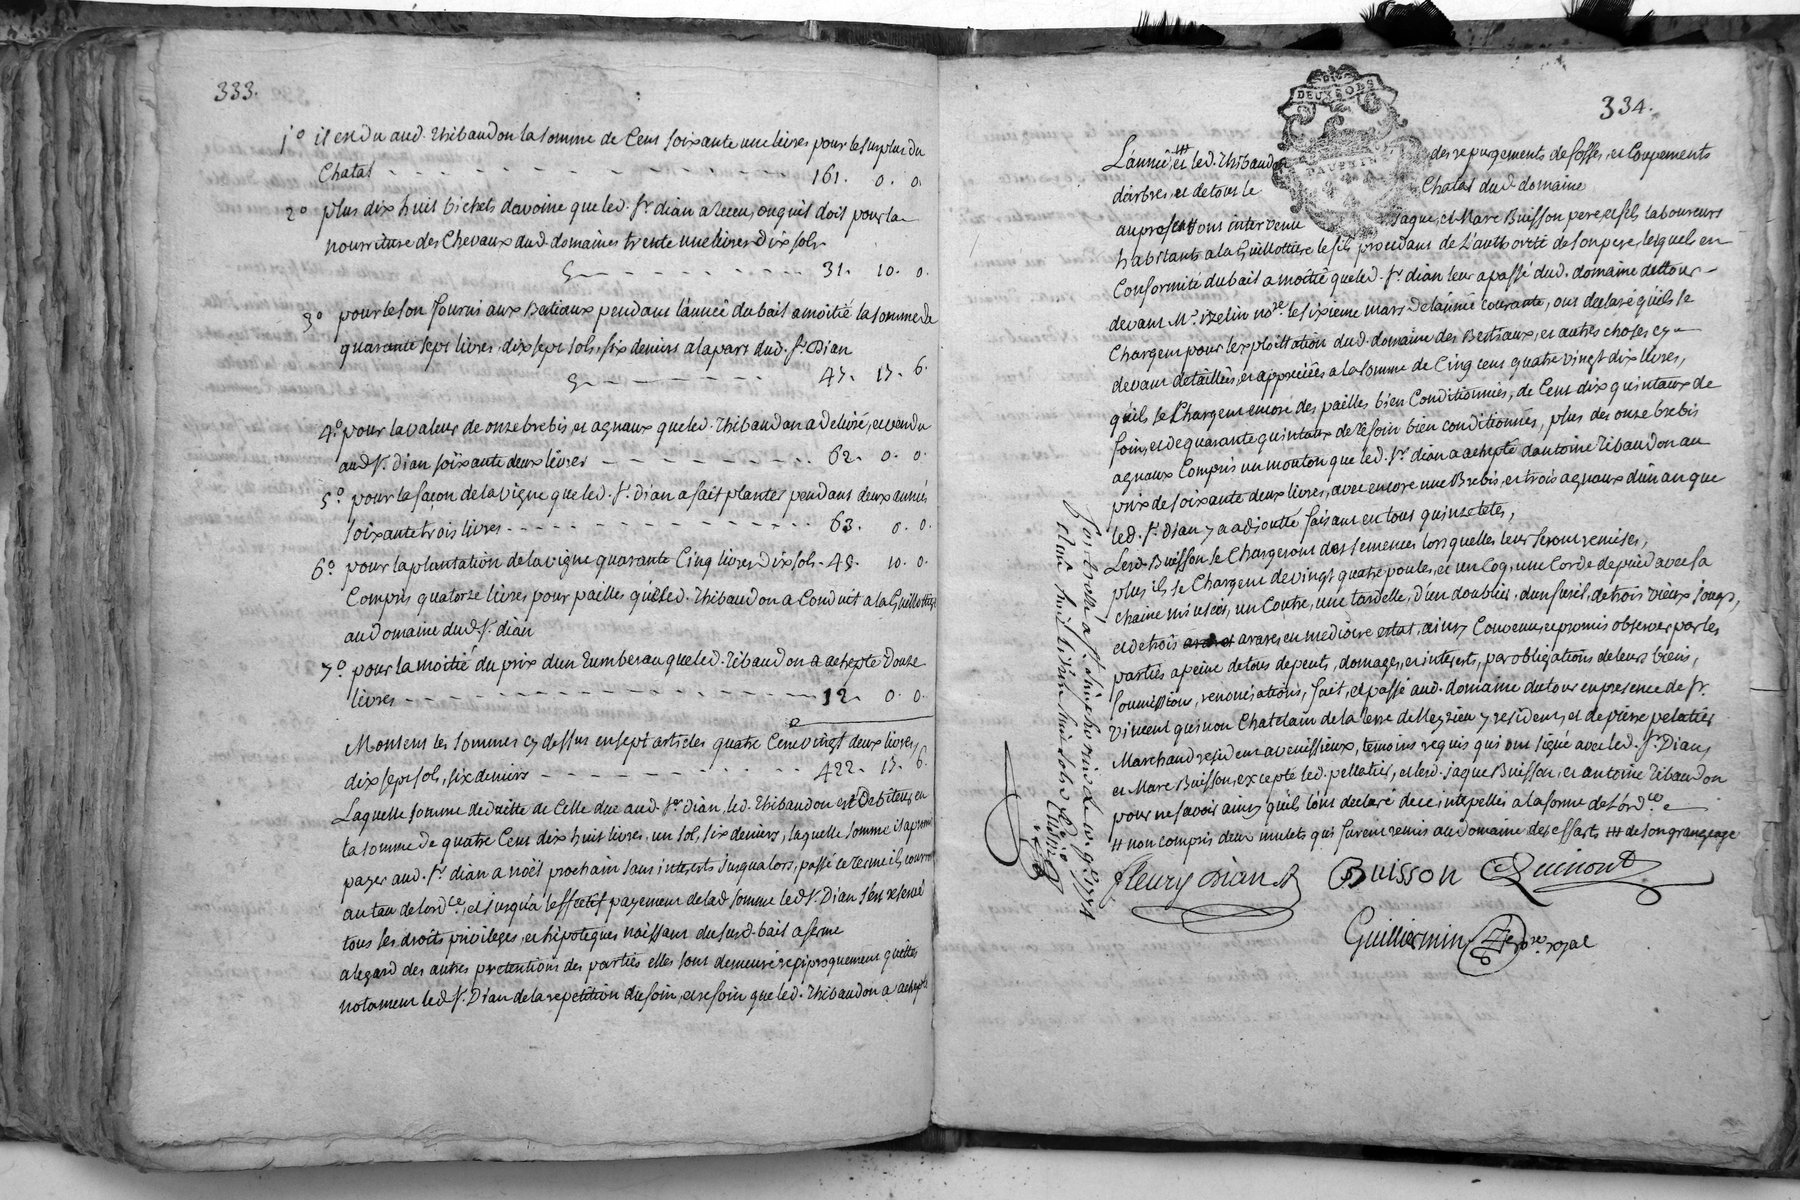 333.
1° il en du aud. Thibaudon la somme de Cent soixante une livres pour le surplus du
Chatal - - - 161. 0. 0.
2° plus dix huit bichets davoine que led. Sr. dian a receu, ou quil doit pour la
nourriture des Chevaux dud. domaines trente une livres dix sols
31. 10. 0.
3° pour le son fourni aux Bestiaux pendant l'année du bail a moitié la somme de
quarante sept livres, dix sept sols, six deniers a la part dud. Sr. Dian
47. 17. 6.
4° pour la valeur de onze brebis, et agnaux que led. Thibaudon a delivré, et vendu
aud Sr. dian soixante deux livres - - - 62. 0. 0.
5° pour la façon de la vigne que led. Sr. dian a fait planter pendant deux années
soixante trois livres - - - 63. 0. 0.
6° pour la plantation de la vigne quarante Cinq livres dix sols - 45. 10. 0.
Compris quatorze livres pour pailles que led. Thibaudon a Conduit a la Guillottiere
au domaine dud Sr. dian
7° pour la moitié du prix d'un tumberau que led. Tibaudon a achepté Douze
livres - - - 12. 0. 0.
Montent les sommes cy dessus en sept articles quatre Cent vingt deux livres
dix sept sols, six deniers - - - 422. 17. 6.
Laquelle somme deduitte de Celle due aud. Sr dian, led. Thibaudon est Debiteur en
la somme de quatre Cent dix huit livres, un sol, six deniers, laquelle somme il a promi
payer aud. Sr. dian a noël prochain sans interests jusqu'alors, passé ce terme ils courront
au tau de lord.ce, et jusqu'a l'effectif payement de lad. somme led Sr. Dian s'est reservé
tous les droits privileges, et hipoteques naissant du susd. bail a ferme
a legard des autres pretentions des parties elles sont demeuré reciproquement quittes
notament led Sr. Dian de la repetition du foin, et refoin que led. Thibaudon a achepté
334.
DEUX SOLS
DAUPHINE
L'année, et led. Thibaudon des repurgements de fosses, et Coupements
d'arbres, et de tous le Chatal dud. domaine
au present ont intervenu Jaque, et Marc Buisson pere, et fils laboureurs
habitants a la Guillottiere le fils procedant de L'authorité de son pere, lesquels en
Conformité du bail a moitié que led. Sr. dian leur a passé dud. domaine du tour
devant Me. izelin nore. le sixieme mars de lannée courante, ont declaré qu'ils se
Chargent pour lexploittation dud. domaine des Bestiaux, et autres choses cy
devant detaillées, et appreciées a la somme de Cinq cent quatre vingt dix livres,
qu'ils se Chargent encore des pailles bien Conditionnées, de Cent dix quintaux de
foin, et de quarante quintaux de refoin bien conditionnés, plus des onze brebis
agnaux Compris un mouton que led. Sr. dian a achepté dantoine Tibaudon au
prix de soixante deux livres, avec encore une Brebis, et trois agnaux d'un an que
led. Sr. dian y a adjoutté faisant en tout quinze tetes,
Lesd. Buisson se Chargeront des semences lorsquelles leur seront remises,
plus ils se Chargent de vingt quatre poules, et un Coq, une Corde de puid avec sa
chaine mi usées, un Coutre, une tardelle, d'un doublier, dun fusil, de trois vieux jougs,
et de trois araires en mediocre estat, ainsy Convenu, et promis observer par les
parties a peine de tous depents, domages, et interests, par obligations de leurs biens,
soumissions, renonciations, fait, et passé aud. domaine du tour en presence de Sr.
vincent guinon Chatelain de la terre de Meyzieu y resident, et de pierre pelatier
Marchand resident a venissieux, temoins requis qui ont signé avec led. Sr. Dian,
et Marc Buisson, excepté led. pellatier, et lesd. jaque Buisson, et antoine Tibaudon
pour ne savoir ainsy qu'ils lont declaré de ce interpellés a la forme de Lord.ce
# non compris deux mulets qui furent remis au domaine des essart ### de son grangeage
fleury Dian Buisson Guinond
Guilliermin nore. royal